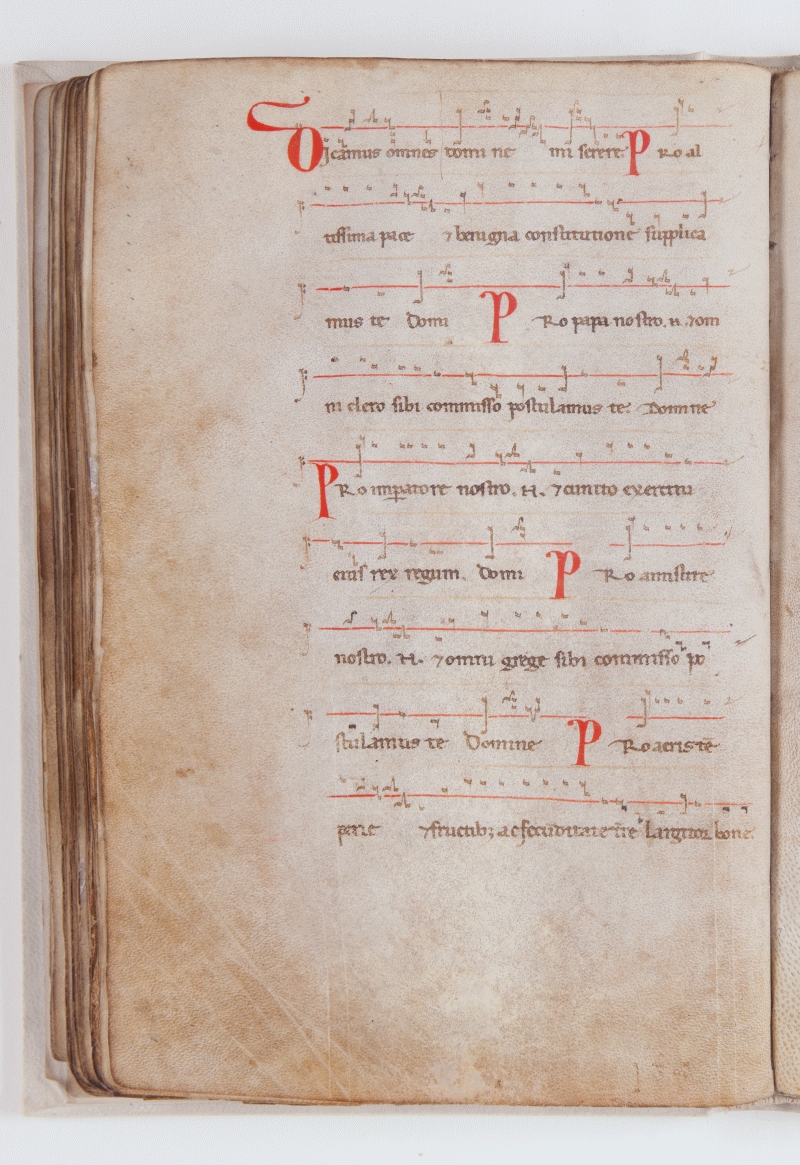 Dicamus omnes domine miserere. P Ro al
tissima pace ⁊ benigna constitutione supplica
mus te Domi P Ro papa nostro. N. ⁊ om
ni clero sibi commisso postulamus te. Domine
P Ro imperatore nostro. N. ⁊ cuncto exercitu
eius rex regum. Domi P Ro antistite
nostro. N. ⁊ omni grege sibi commisso po
stulamus te Domine P Ro aeris tē
perie ⁊ fructib; ac fecunditate tr̄e largitor bone.